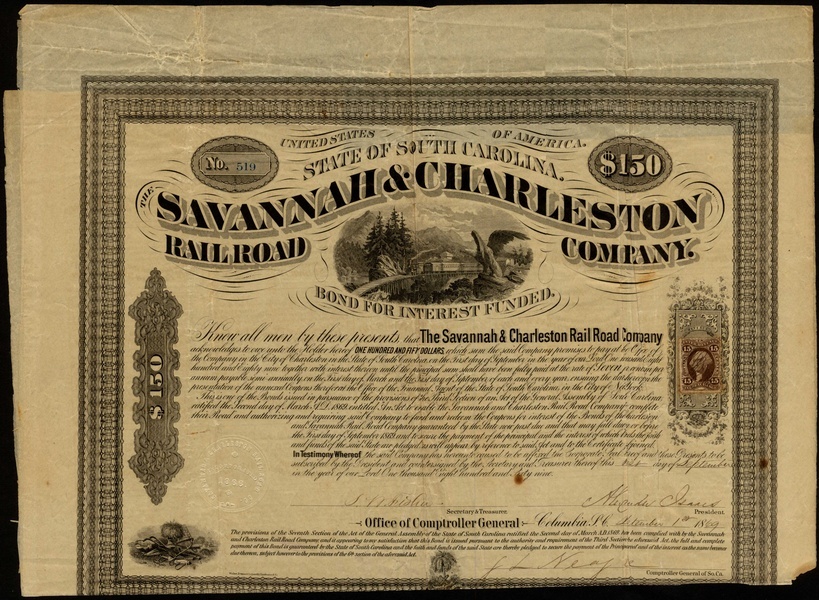 UNITED STATES OF AMERICA.
STATE OF SOUTH CAROLINA.
No. 519
$150
THE
SAVANNAH & CHARLESTON
RAIL ROAD COMPANY.
BOND FOR INTEREST FUNDED.
Know all men by these presents that The Savannah & Charleston Rail Road Company
acknowledges to owe unto the Holder hereof ONE HUNDRED AND FIFTY DOLLARS, which sum the said Company promises to pay at the Office of
the Company in the City of Charleston in the State of South Carolina on the First day of September in the year of our Lord One thousand eight
hundred and eighty nine together with interest thereon until the principal sum shall have been fully paid at the rate of Seven per centum per
annum payable semi annually on the First day of March and the First day of September of each and every year ensuing the date hereof on the
presentation of the annexed Coupons therefor at the Office of the Financial Agent of the State of South Carolina in the City of New York.
This is one of the Bonds issued in pursuance of the provisions of the Third Section of an Act of the General Assembly of South Carolina
ratified the Second day of March A.D. 1869 entitled An Act to enable the Savannah and Charleston Rail Road Company to complete
their Road and authorizing and requiring said Company to fund and redeem the Coupons for interest of the Bonds of the Charleston
and Savannah Rail Road Company guaranteed by the State now past due and that may fall due on or before
the First day of September 1869 and to secure the payment of the principal and the interest of which Bonds the faith
and funds of the said State are pledged as will appear by reference to said Act and to the Certificate given
In Testimony Whereof the said Company has hereunto caused to be affixed the Corporate Seal hereof and these Presents to be
subscribed by the President and countersigned by the Secretary and Treasurer thereof this day of September
in the year of our Lord One Thousand Eight hundred and sixty nine.
$150
15 15
15 15
Alexander Isaacs
Secretary & Treasurer.
President
Office of Comptroller General Columbia S.C. September 1st 1869
The provisions of the Seventh Section of the Act of the General Assembly of the State of South Carolina ratified the Second day of March A.D. 1869 have been complied with by the Savannah
and Charleston Rail Road Company and it appearing to my satisfaction that this Bond is issued pursuant to the authority and requirement of the Third Section of the said Act, the full and complete
payment of this Bond is guaranteed by the State of South Carolina and the faith and funds of the said State are hereby pledged to secure the payment of the Principal and of the interest as the same become
due thereon, subject however to the provisions of the 6th section of the aforesaid Act.
Comptroller General of So. Ca.